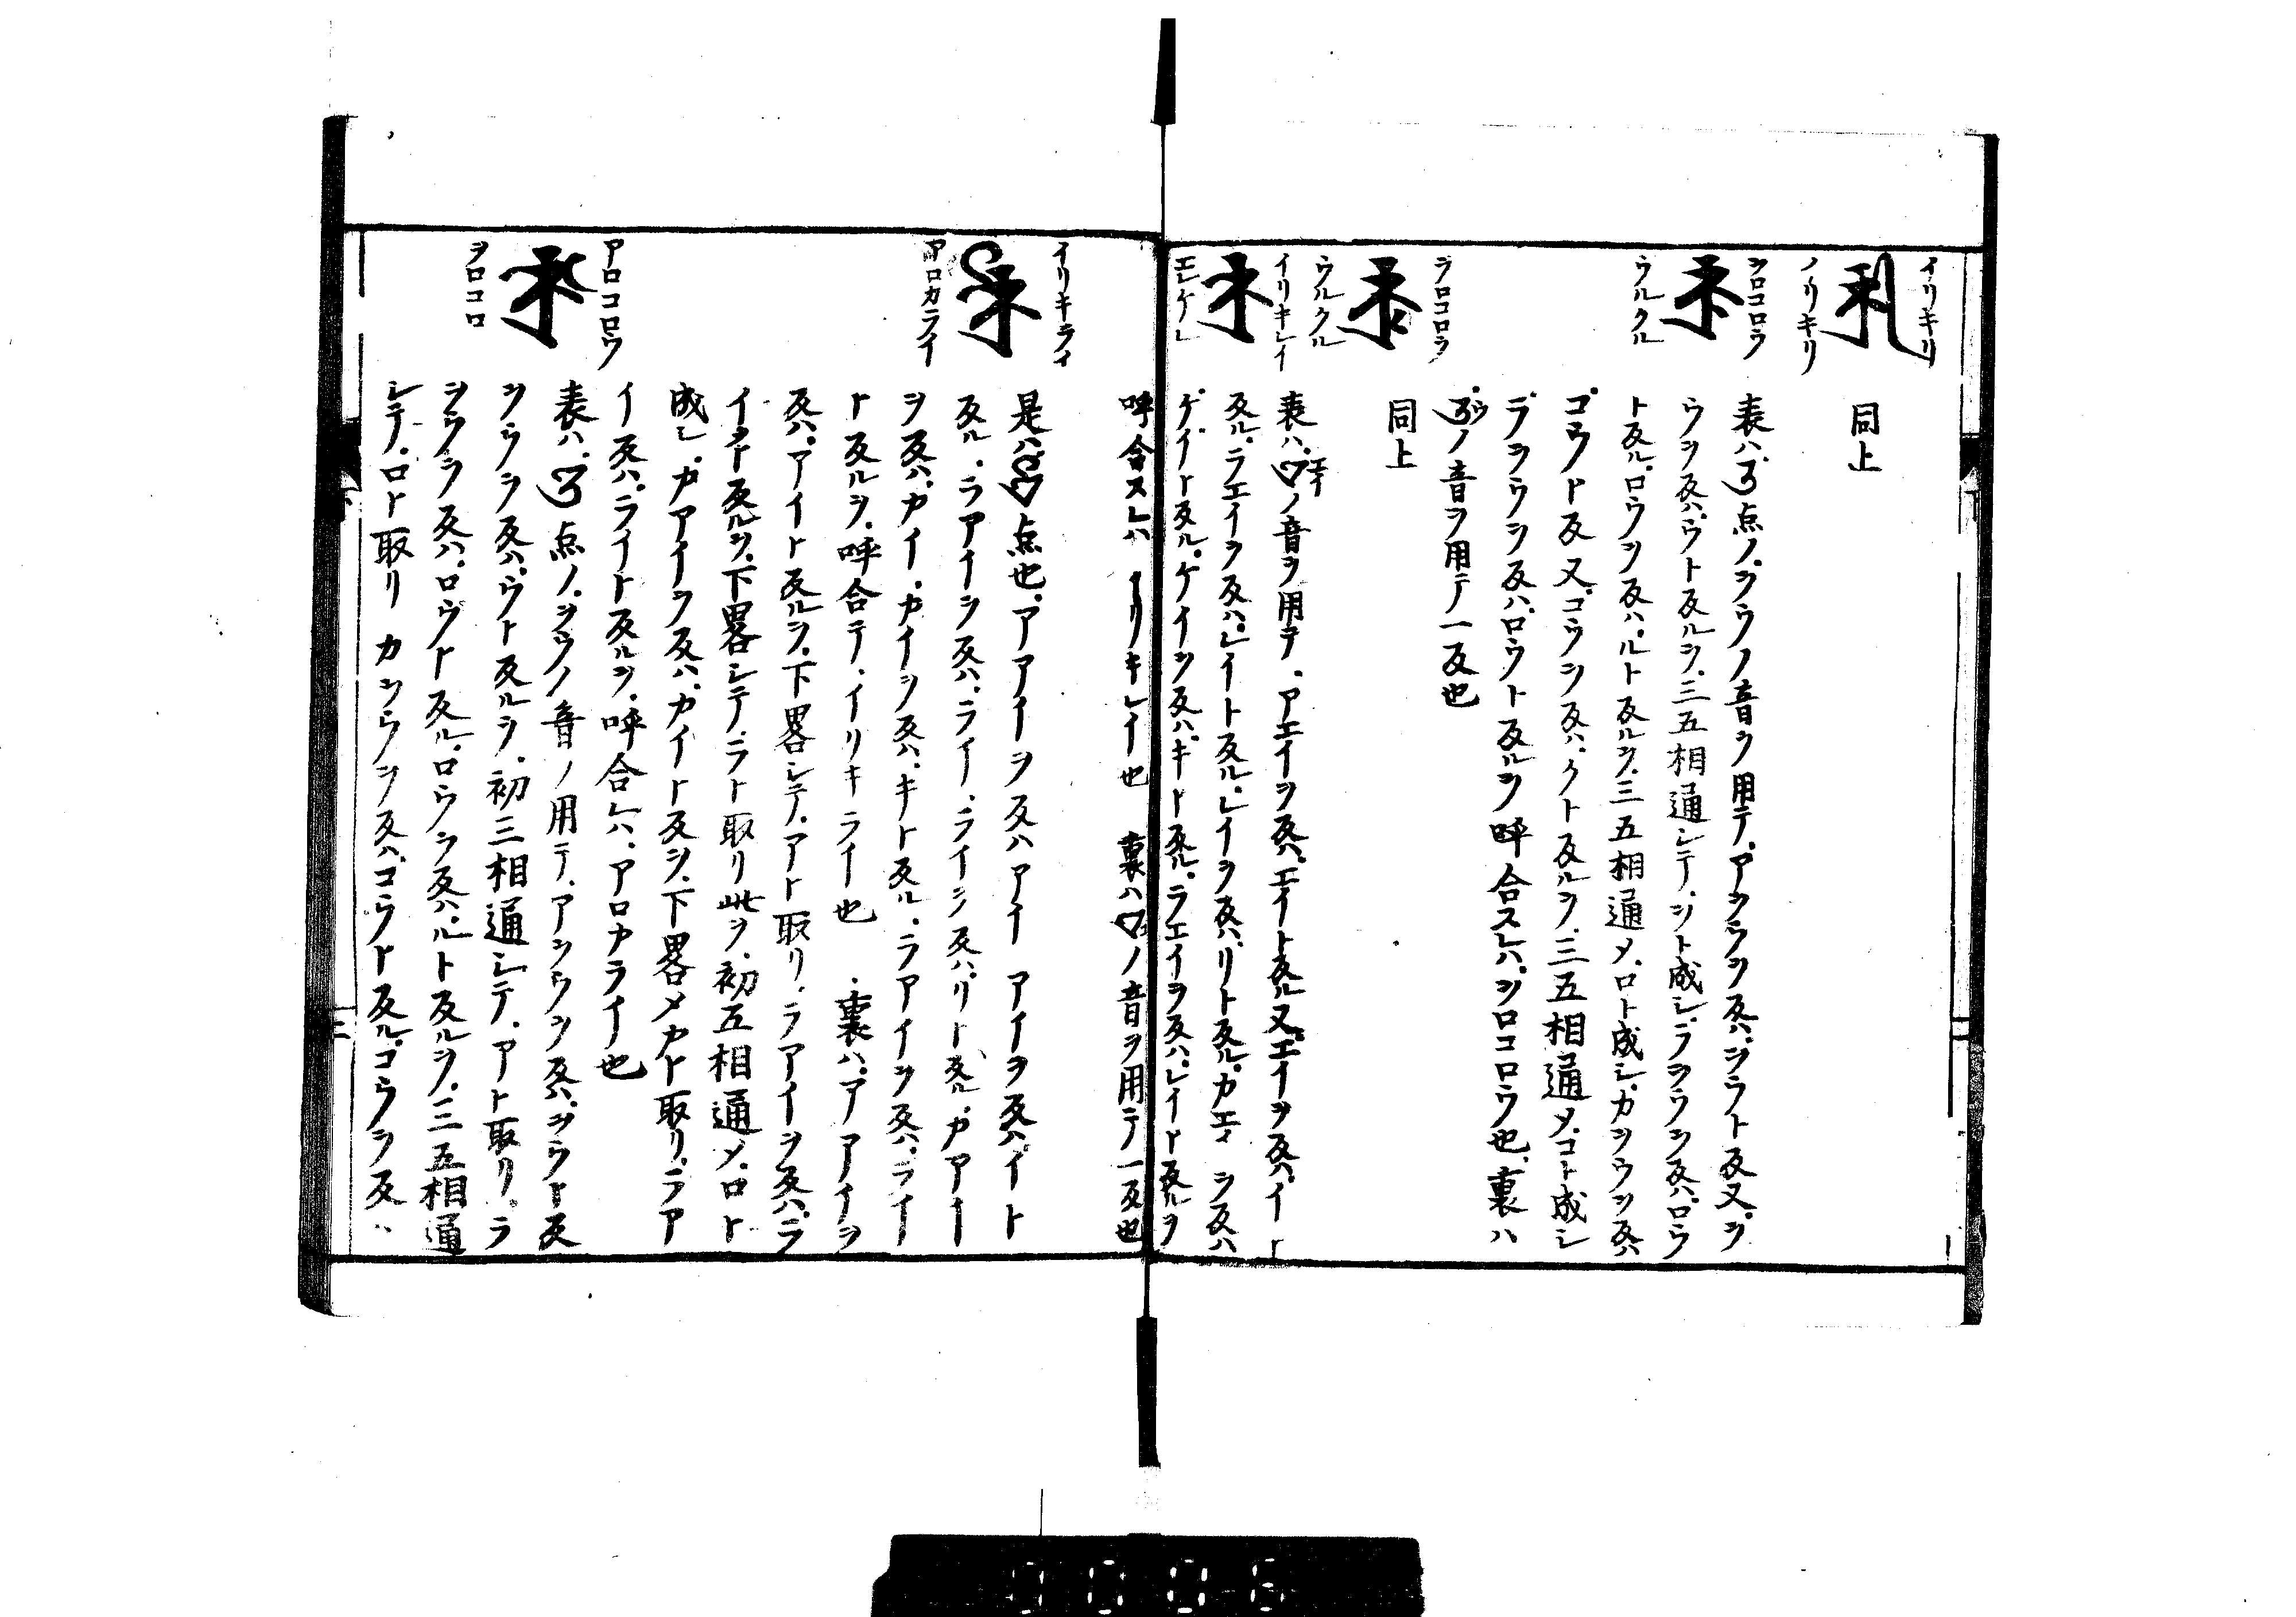 イリキリ
ノリキリ
同上
ヲロコロウ
ウルクル
表ハ点ノヲウノ音ヲ用テアヲウヲ反ハヲウト反又ヲ
ウヲ反ハウト反ルヲ三五相通シテヲト成シラヲウヲ反ハロウ
ト反ルロウヲ反ハルト反ルヲ三五相通メロト成シカヲウヲ反ハ
コウト反又コウヲ反ハクト反ルヲ三五相通メコト成シ
ラヲウヲ反ハロウト反ルヲ呼合スレハヲロコロウ也裏ハ
ウノ音ヲ用テ一反也
ヲロコロウ
ウルクル
同上
イリキレイ
エレケレ
表ハノ音ヲ用テアエイヲ反ハエイト反ル又エイヲ反ハイト
反ルラエイヲ反ハレイト反ルレイヲ反ハリト反ルカエイヲ反ハ
ケイト反ルケイヲ反ハキト反ルラエイヲ反ハレイト反ルヲ
呼合スレハイリキレイ也 裏ハノ音ヲ用テ一反也
イリキライ
アロカライ
是ハ点也アアイヲ反ハアイ アイヲ反ハイト
反ルラアイヲ反ハライライヲ反ハリト反ルカアイ
ヲ反ハカイカイヲ反ハキト反ルラアイヲ反ハライ
ト反ルヲ呼合テイリキライ也 裏ハアアイヲ
反ハアイト反ルヲ下畧シテアト取リラアイヲ反ハラ
イト反ルヲ下畧シテラト取リ此ヲ初五相通メロト
成シカアイヲ反ハカイト反ヲ下畧メカト取リラア
イ反ハライト反ルヲ呼合レハアロカライ也
アロコロウ
ヲロコロ
表ハ点ノヲウノ音ノ用テアヲウヲ反ハヲウト反
ヲウヲ反ハウト反ルヲ初三相通シテアト取リラ
ヲウヲ反ハロウト反ルロウヲ反ハルト反ルヲ三五相通
シテロト取リ カヲウヲ反ハコウト反ルコウヲ反ハ
三